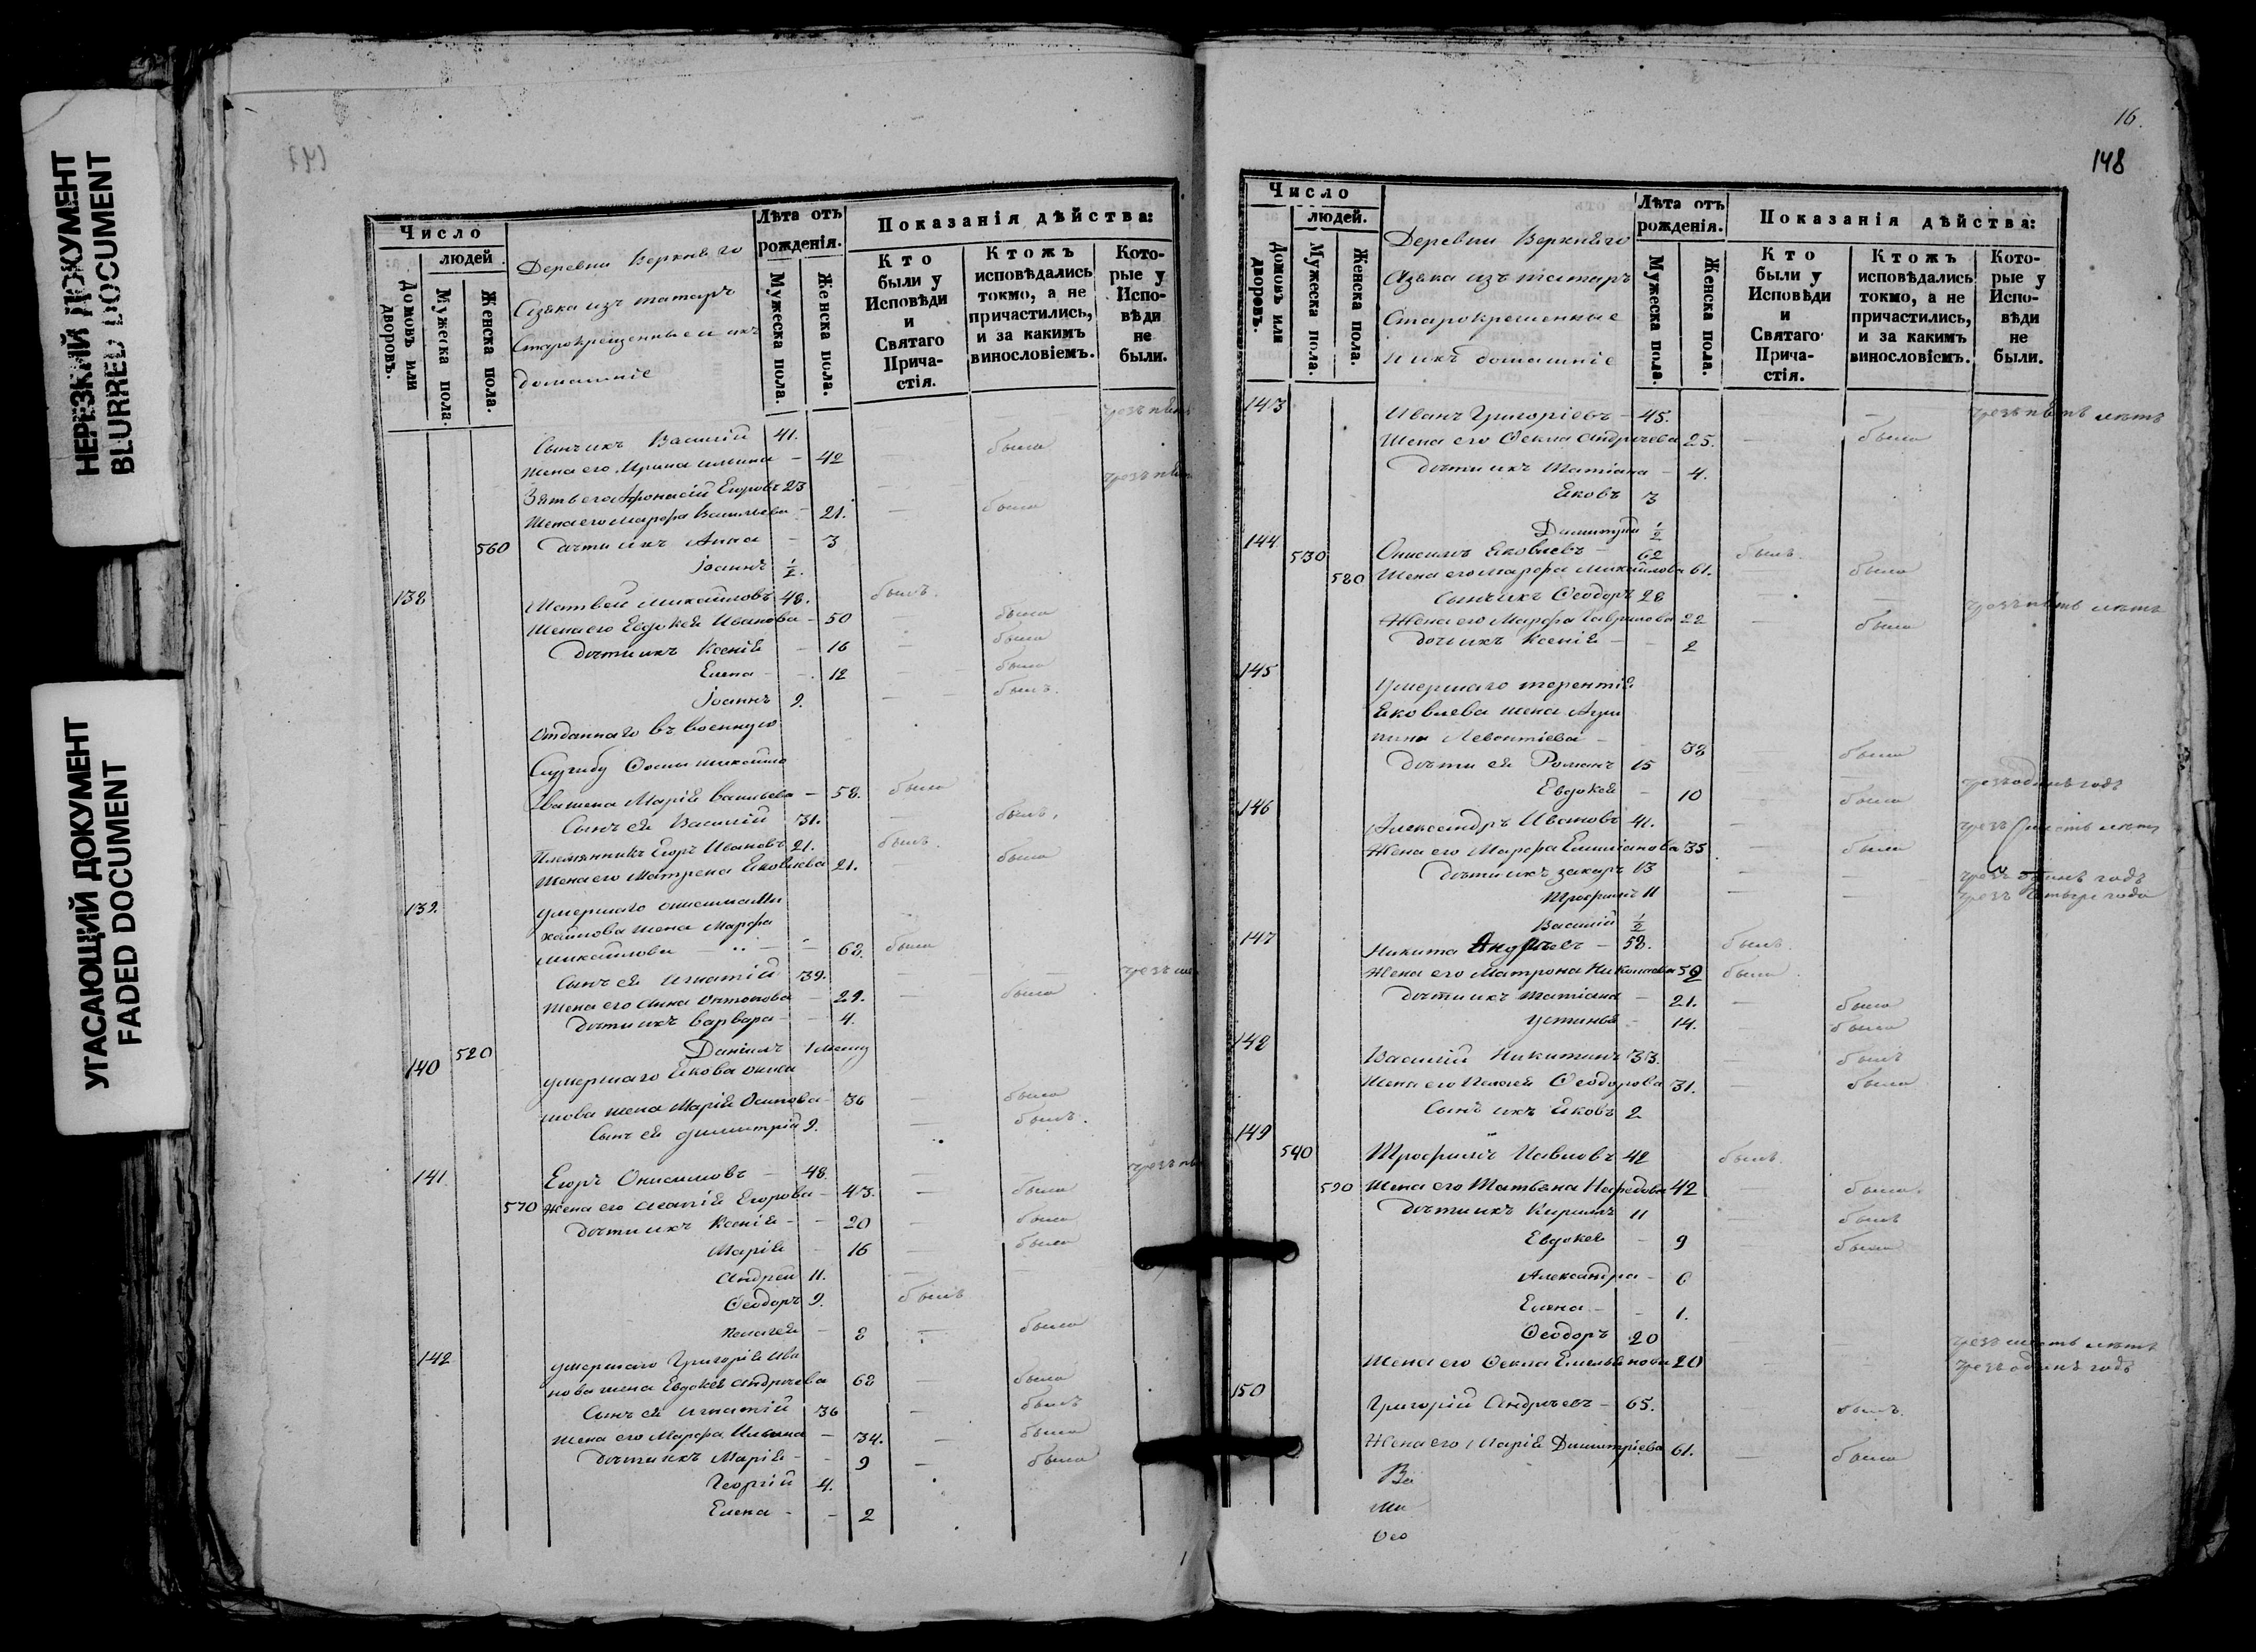 НЕРЕЗКИЙ ДОКУМЕНТ
BLURRED DOCUMENT
УГАСАЮЩИЙ ДОКУМЕНТ
FADED DOCUMENT
Число
людей
Домовъ или дворовъ.
Мужеска пола.
Женска пола.
Деревни Верхняго
Азяка изъ татаръ
Старокрещенные и ихъ
домашніе
Лѣта отъ рожденія.
Мужеска пола.
Женска пола.
Показанія дѣйства:
Кто были у Исповѣди и Святаго Причастія.
Ктожъ исповѣдались токмо, а не причастились, и за какимъ винословіемъ.
Которые у Исповѣди не были.
Сынъ ихъ Василій 41.
Жена его Ирина Ильина - 42 была
Зять его Афонасій Егоровъ 23
Жена его Марфа Васильева - 21. была
560 дѣти ихъ Анна - 3
Іоаннъ ½.
138 Матвей Михайловъ 48. былъ.
Жена его Евдокея Иванова - 50 была
Дѣти ихъ Ксенія - 16 была
Елена - 12 была
Іоаннъ 9. былъ.
Отданнаго въ военную
Службу
жена Марія Васильева - 58. была
Сынъ ея Василій 31. былъ.
Племянникъ Егоръ Ивановъ 21. былъ.
Жена его Матрена Яковлева 21. была
139. умершаго Онисима Ми
хайлова жена Марфа
Михайлова - 68. была
Сынъ ея Игнатій 39.
Жена его Анна Антонова - 29. была
Дѣти ихъ Варвара - 4.
520 Даніилъ 1 месяц
140 умершаго Якова Ониси
мова жена Марія Осипова - 36 была
Сынъ ея Димитрій 9. былъ.
141 Егоръ Онисимовъ - 48.
570 Жена его Егорова - 43. была
Дѣти ихъ Ксенія - 20 была
Марія - 16 была
Андрей 11.
Ѳеодоръ 9. былъ
Пелагея - 8 была
142 умершаго Григорія Ива
нова жена Евдокея Андрѣева 68 была
Сынъ ея Игнатій 36 былъ
Жена его Марфа Ильина - 34. была
Дѣти ихъ Марія - 9 была
Георгій 4.
Елена - 2
16.
148
Число
людей.
Домовъ или дворовъ.
Мужеска пола.
Женска пола.
Деревни Верхняго
Азяка изъ татаръ
Старокрещенные
и ихъ домашніе
Лѣта отъ рожденія.
Мужеска пола.
Женска пола.
Показанія дѣйства:
Кто были у Исповѣди и Святаго Причастія.
Ктожъ исповѣдались токмо, а не причастились, и за какимъ винословіемъ.
Которые у Исповѣди не были.
143 Иванъ Григоріевъ - 45. чрезъ пять лѣтъ
Жена его Ѳекла Андрѣева 25. была
Дѣти ихъ Татіана - 4.
Яковъ 3
Димитрій ½
144 530 Онисимъ Яковлевъ - 62 былъ.
580 Жена его Марфа Михайлова 61. была
Сынъ ихъ Ѳеодоръ 28 чрезъ пять лѣтъ
Жена его Марфа Гаврилова 22 была
Дочь ихъ Ксенія - 2
145 Умершаго Терентія
Яковлева жена Агри
пина Левонтіева - 38 была
Дѣти ея Романъ 15 чрезъ одинъ годъ
Евдокея - 10 была
146 Александръ Ивановъ 41. чрезъ шесть лѣтъ
Жена его Марфа Емиліанова 35. была
Дѣти ихъ Захаръ 13 чрезъ одинъ годъ
Трофимъ 11 чрезъ четыре года
Василій ½
147 Никита Андрѣевъ - 58. былъ.
Жена его Матрона Николаева 59 была.
Дѣти ихъ Татіана - 21. была
Устинья - 14. была
148 Василій Никитинъ 33. былъ
Жена его Пелагея Ѳеодорова 31. была
Сынъ ихъ Яковъ 2
149 540 Трофимъ Павловъ 42 былъ.
590 Жена его Татьяна 42 была.
Дѣти ихъ Кирилъ 11 былъ
Евдокея - 9 была
Александра - 6
Елена - 1.
Ѳеодоръ 20 чрезъ шесть лѣтъ
Жена его Ѳекла Емельянова 20 чрезъ одинъ годъ
150 Григорій Андрѣевъ - 65. былъ.
Жена его Марія Димитріева 61. была